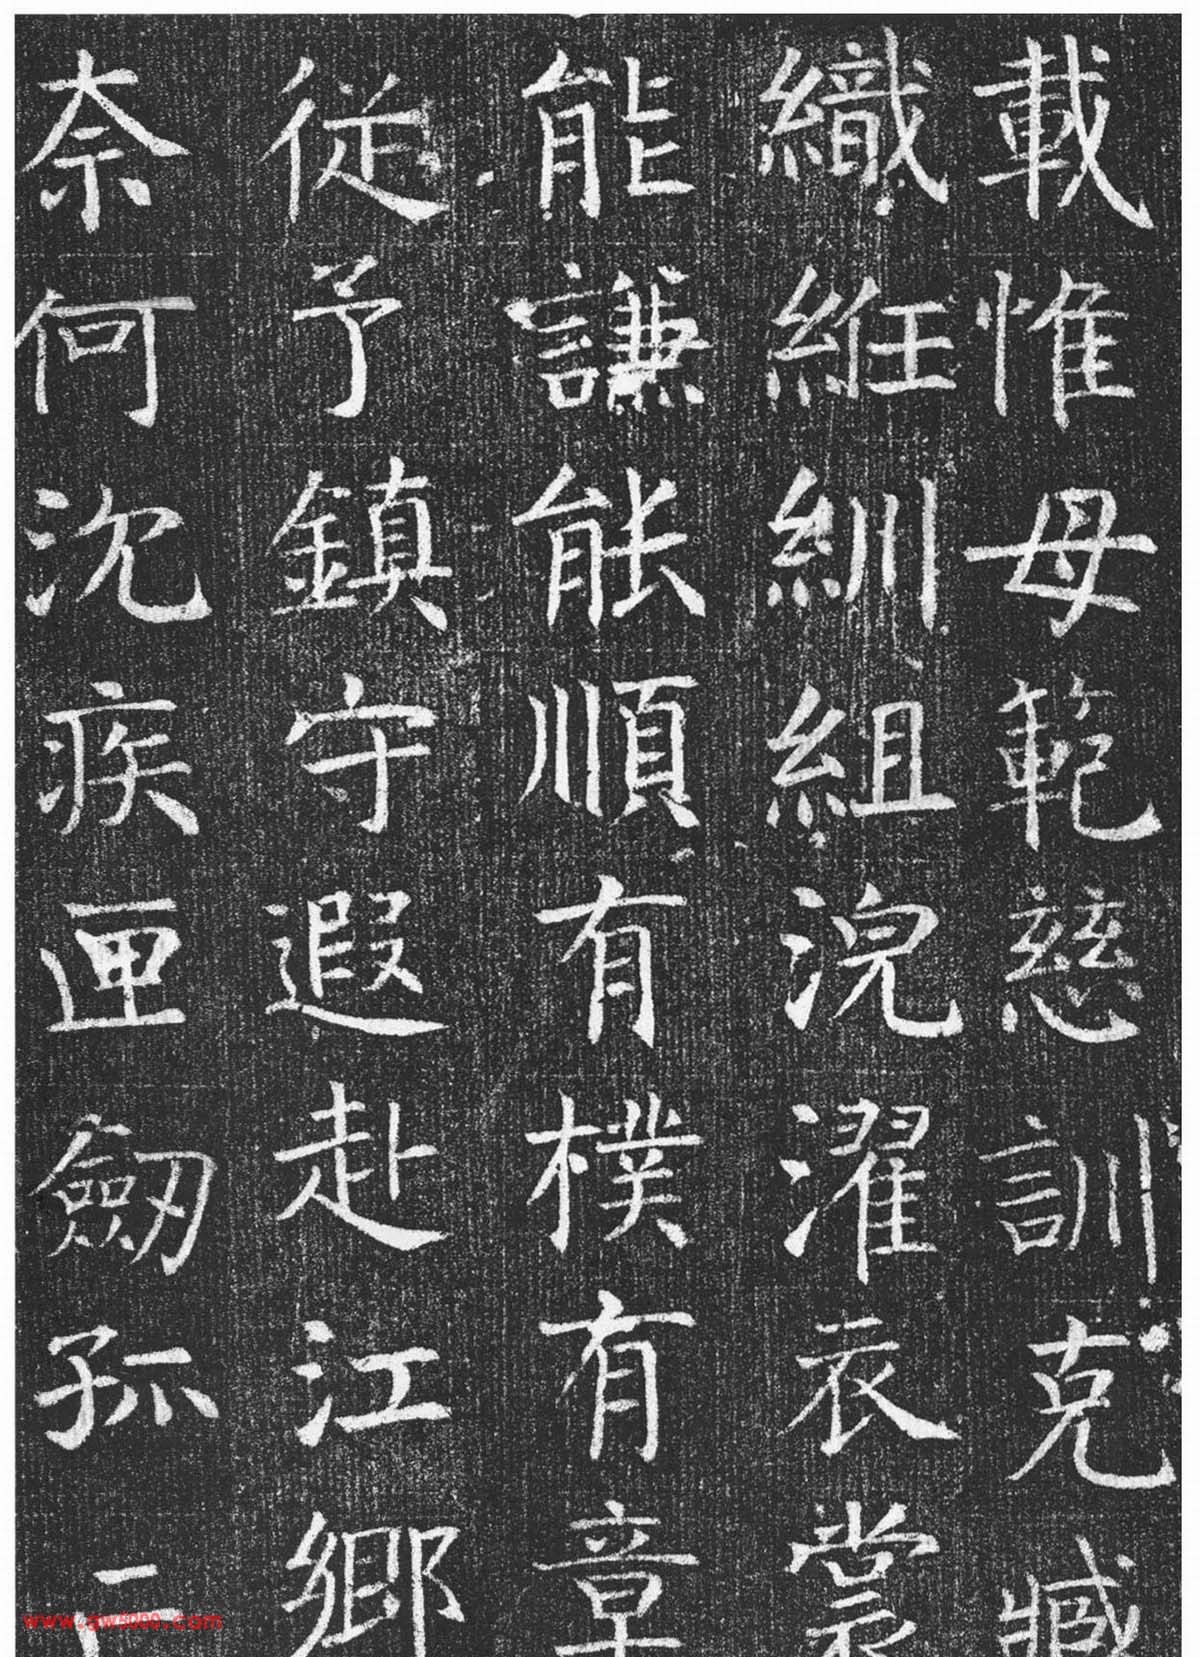 載惟母範慈訓克臧
織紝紃組浣濯衣裳
能謙能順有樸有章
從予鎮守遐赴江鄉
奈何沈疾匣劒孤亡
www.aw5000.com